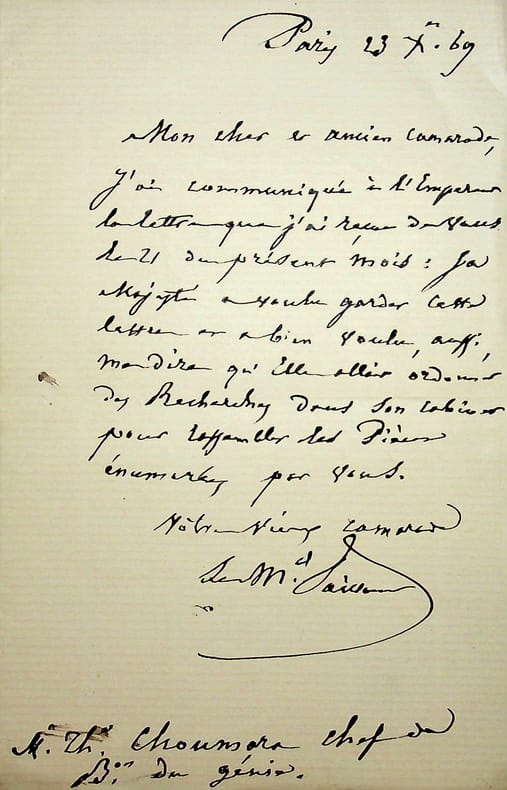 Paris 23 Xre. 69
Mon cher et ancien Camarade,
J'ai communiquée à l'Empereur
la lettre que j'ai reçue de vous
le 21 du présent mois : Sa
Majesté a voulu garder cette
lettre et a bien voulu, aussi,
me dire qu'Elle allait ordonner
des Recherches dans son cabinet
pour rassembler les Pièces
énumerées par vous.
Votre vieux camarade
Le Mal. Vaillant
Mr. Th. Choumara chef de
Bon. du génie.